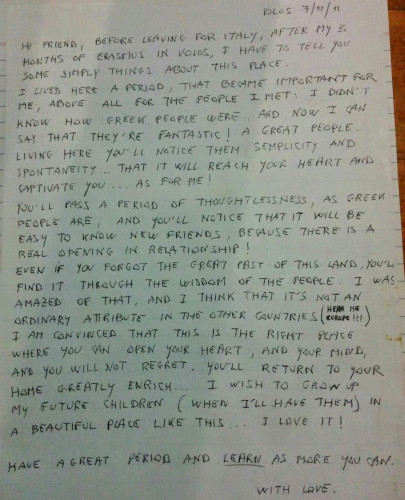 VOLOS 7/11/11
HI FRIEND, BEFORE LEAVING FOR ITALY, AFTER MY 5
MONTHS OF ERASMUS IN VOLOS, I HAVE TO TELL YOU
SOME SIMPLY THINGS ABOUT THIS PLACE.
I LIVED HERE A PERIOD, THAT BECAME IMPORTANT FOR
ME, ABOVE ALL FOR THE PEOPLE I MET: I DIDN'T
KNOW HOW GREEK PEOPLE WERE. AND NOW I CAN
SAY THAT THEY'RE FANTASTIC! A GREAT PEOPLE.
LIVING HERE YOU'LL NOTICE THEM SEMPLICITY AND
SPONTANEITY... THAT IT WILL REACH YOUR HEART AND
CAPTIVATE YOU... AS FOR ME!
YOU'LL PASS A PERIOD OF THOUGHTLESSNESS, AS GREEK
PEOPLE ARE, AND YOU'LL NOTICE THAT IT WILL BE
EASY TO KNOW NEW FRIENDS, BECAUSE THERE IS A
REAL OPENING IN RELATIONSHIP!
EVEN IF YOU FORGOT THE GREAT PAST OF THIS LAND, YOU'LL
FIND IT THROUGH THE WISDOM OF THE PEOPLE. I WAS
AMAZED OF THAT, AND I THINK THAT IT'S NOT AN
ORDINARY ATTRIBUTE IN THE OTHER COUNTRIES (HEAR ME EUROPE!!!)
I AM CONVINCED THAT THIS IS THE RIGHT PLACE
WHERE YOU CAN OPEN YOUR HEART, AND YOUR MIND,
AND YOU WILL NOT REGRET. YOU'LL RETURN TO YOUR
HOME GREATLY ENRICH... I WISH TO GROW UP
MY FUTURE CHILDREN (WHEN I'LL HAVE THEM) IN
A BEAUTIFUL PLACE LIKE THIS... I LOVE IT!
HAVE A GREAT PERIOD AND LEARN AS MORE YOU CAN.
WITH LOVE.